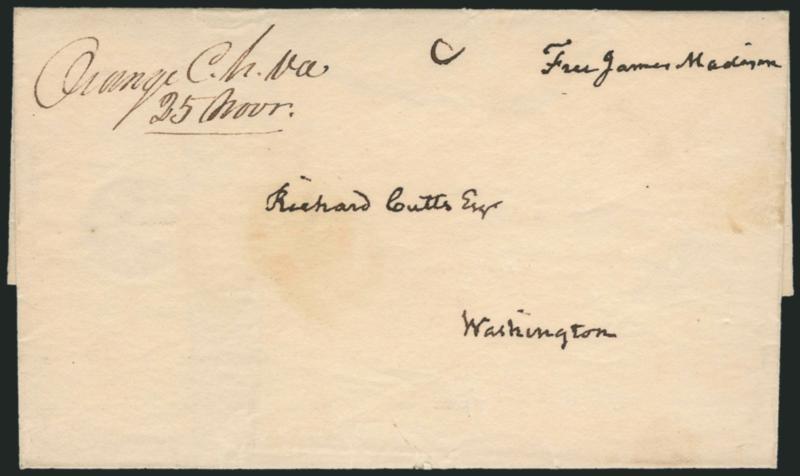 Orange C.h. Va
25 Novr.
Free James Madison
Richard Cutts Esqr
Washington